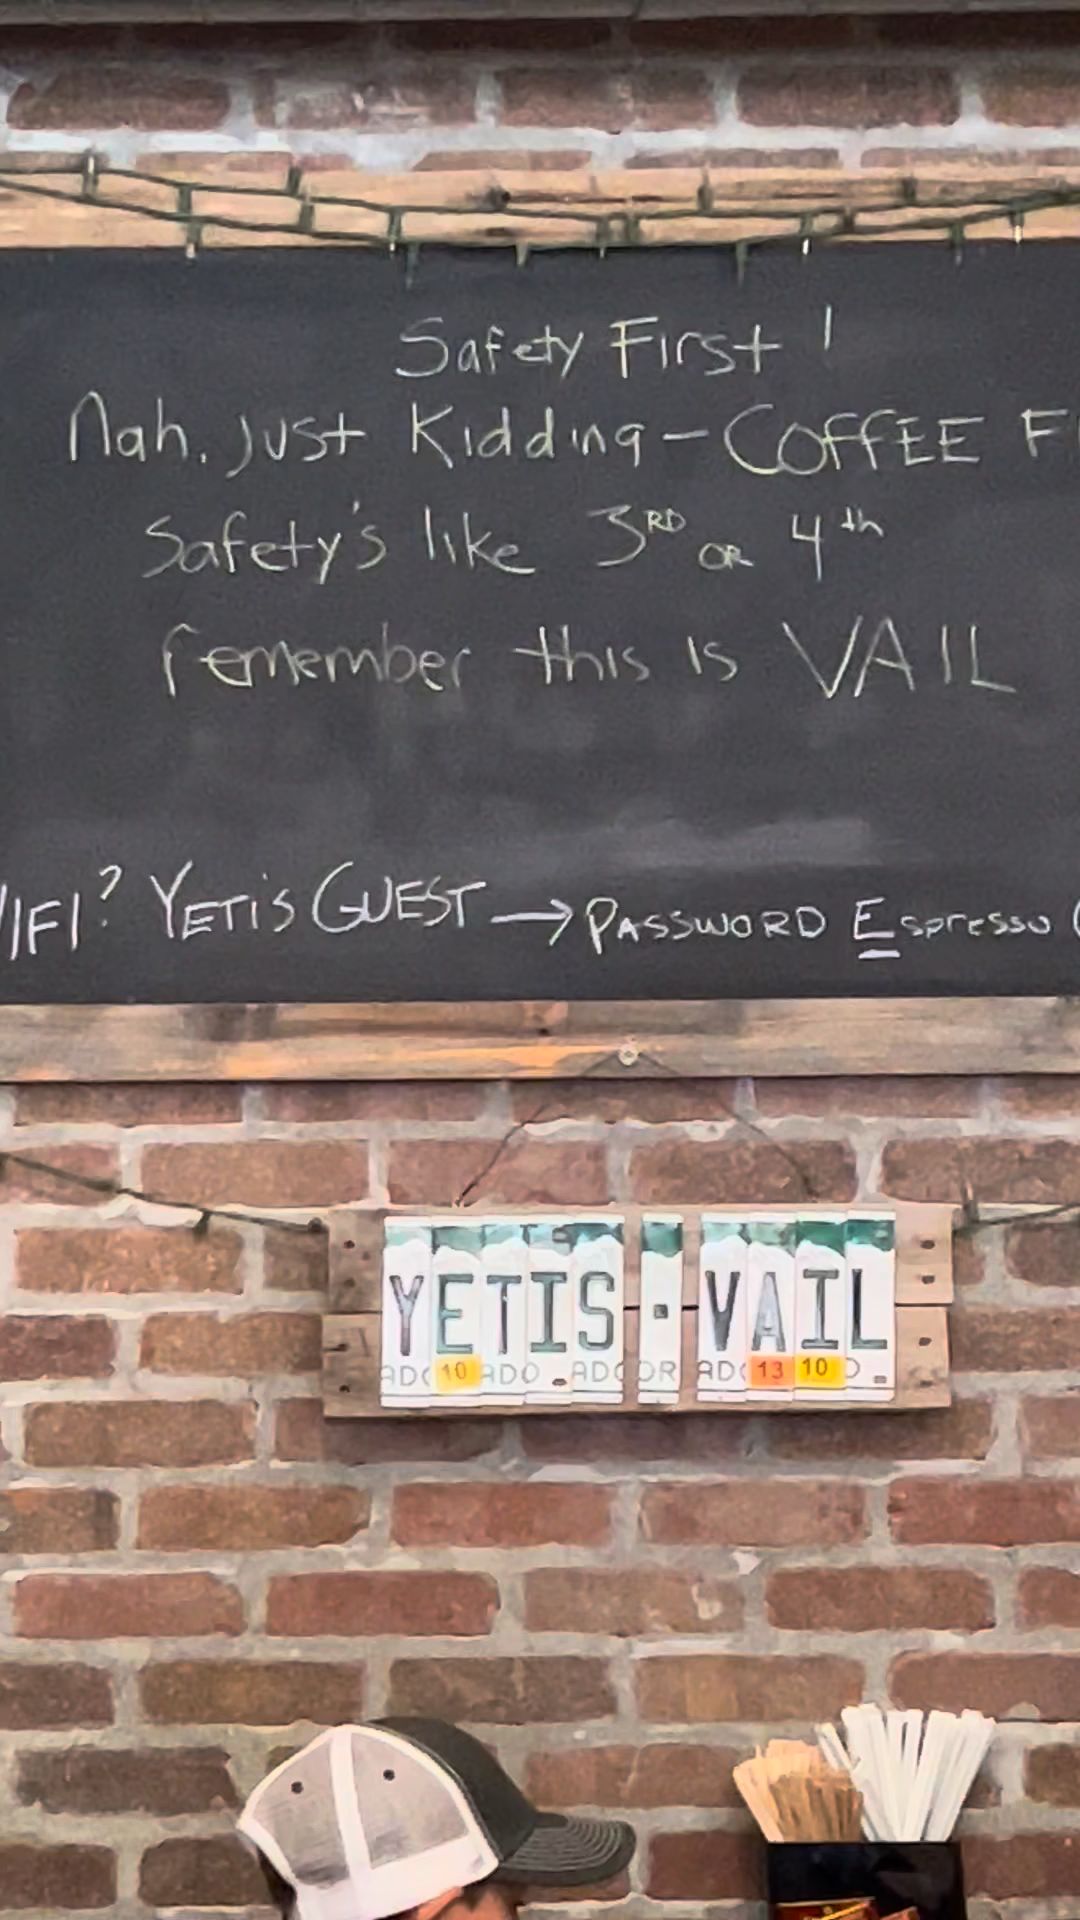 Safety First !
Nah, just Kidding - COFFEE F
Safety's like 3RD OR 4th
remember this is VAIL
IFI? YETiS GUEST → PASSWORD Espresso
YETIS · VAIL
ADO 10 ADO ADO OR ADO 13 10 O